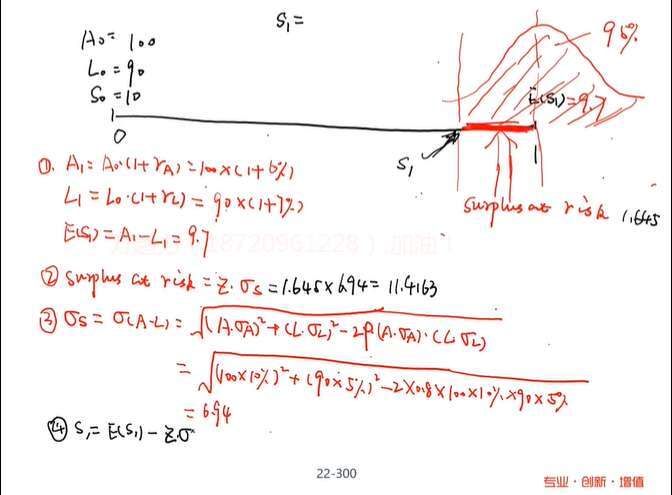 S₁ =
A₀ = 100
L₀ = 90
S₀ = 10
95%
E(S₁) = 9.7
0
S₁
1
surplus at risk 1.645
①. A₁ = A₀·(1+r_A) = 100×(1+6%)
L₁ = L₀·(1+r_L) = 90×(1+7%)
E(S₁) = A₁-L₁ = 9.7
② Surplus at risk = Z·σ_S = 1.645×6.94 = 11.4163
③ σ_S = σ(A-L) = √((A·σ_A)²+(L·σ_L)²-2ρ(A·σ_A)·(L·σ_L)
= √((100×10%)²+(90×5%)²-2×0.8×100×10%×90×5%
= 6.94
④ S₁ = E(S₁) - Z·σ
22-300
专业·创新·增值